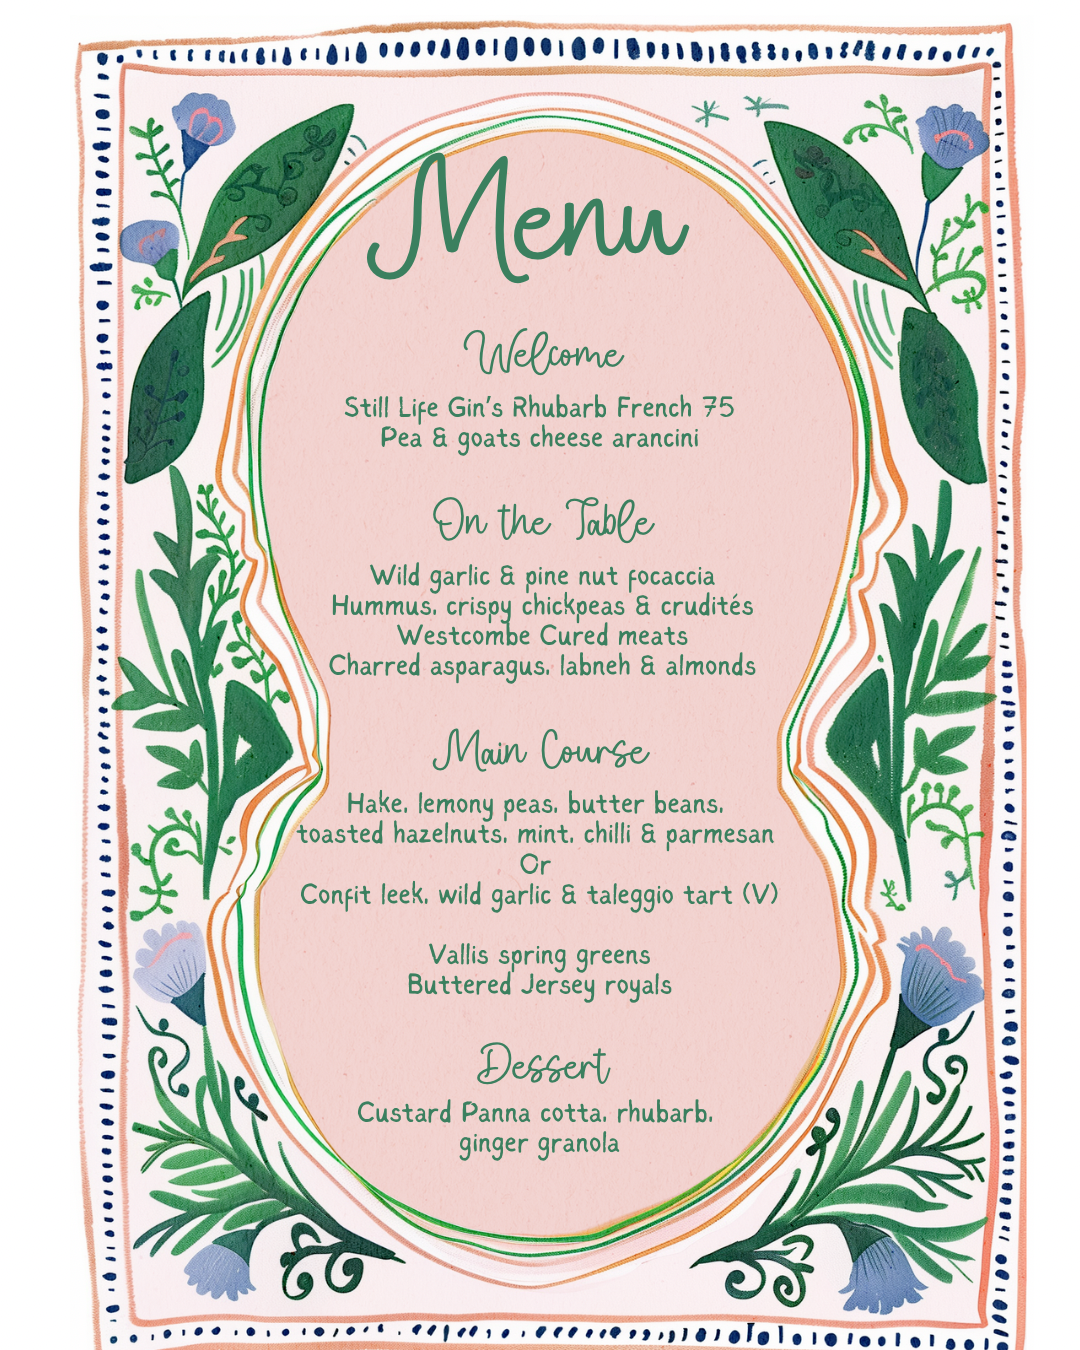 Menu
Welcome
Still Life Gin's Rhubarb French 75
Pea & goats cheese arancini
On the Table
Wild garlic & pine nut focaccia
Hummus, crispy chickpeas & crudités
Westcombe Cured meats
Charred asparagus, labneh & almonds
Main Course
Hake, lemony peas, butter beans,
toasted hazelnuts, mint, chilli & parmesan
Or
Confit leek, wild garlic & taleggio tart (V)
Vallis spring greens
Buttered Jersey royals
Dessert
Custard Panna cotta, rhubarb,
ginger granola